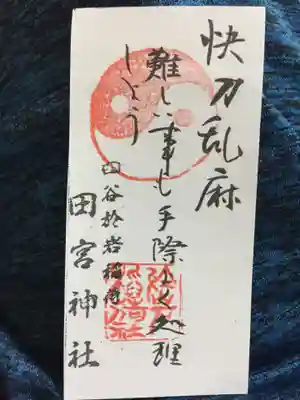 快刀乱麻
難しい事も手際よく処理
しよう
四谷於岩稲荷
田宮神社